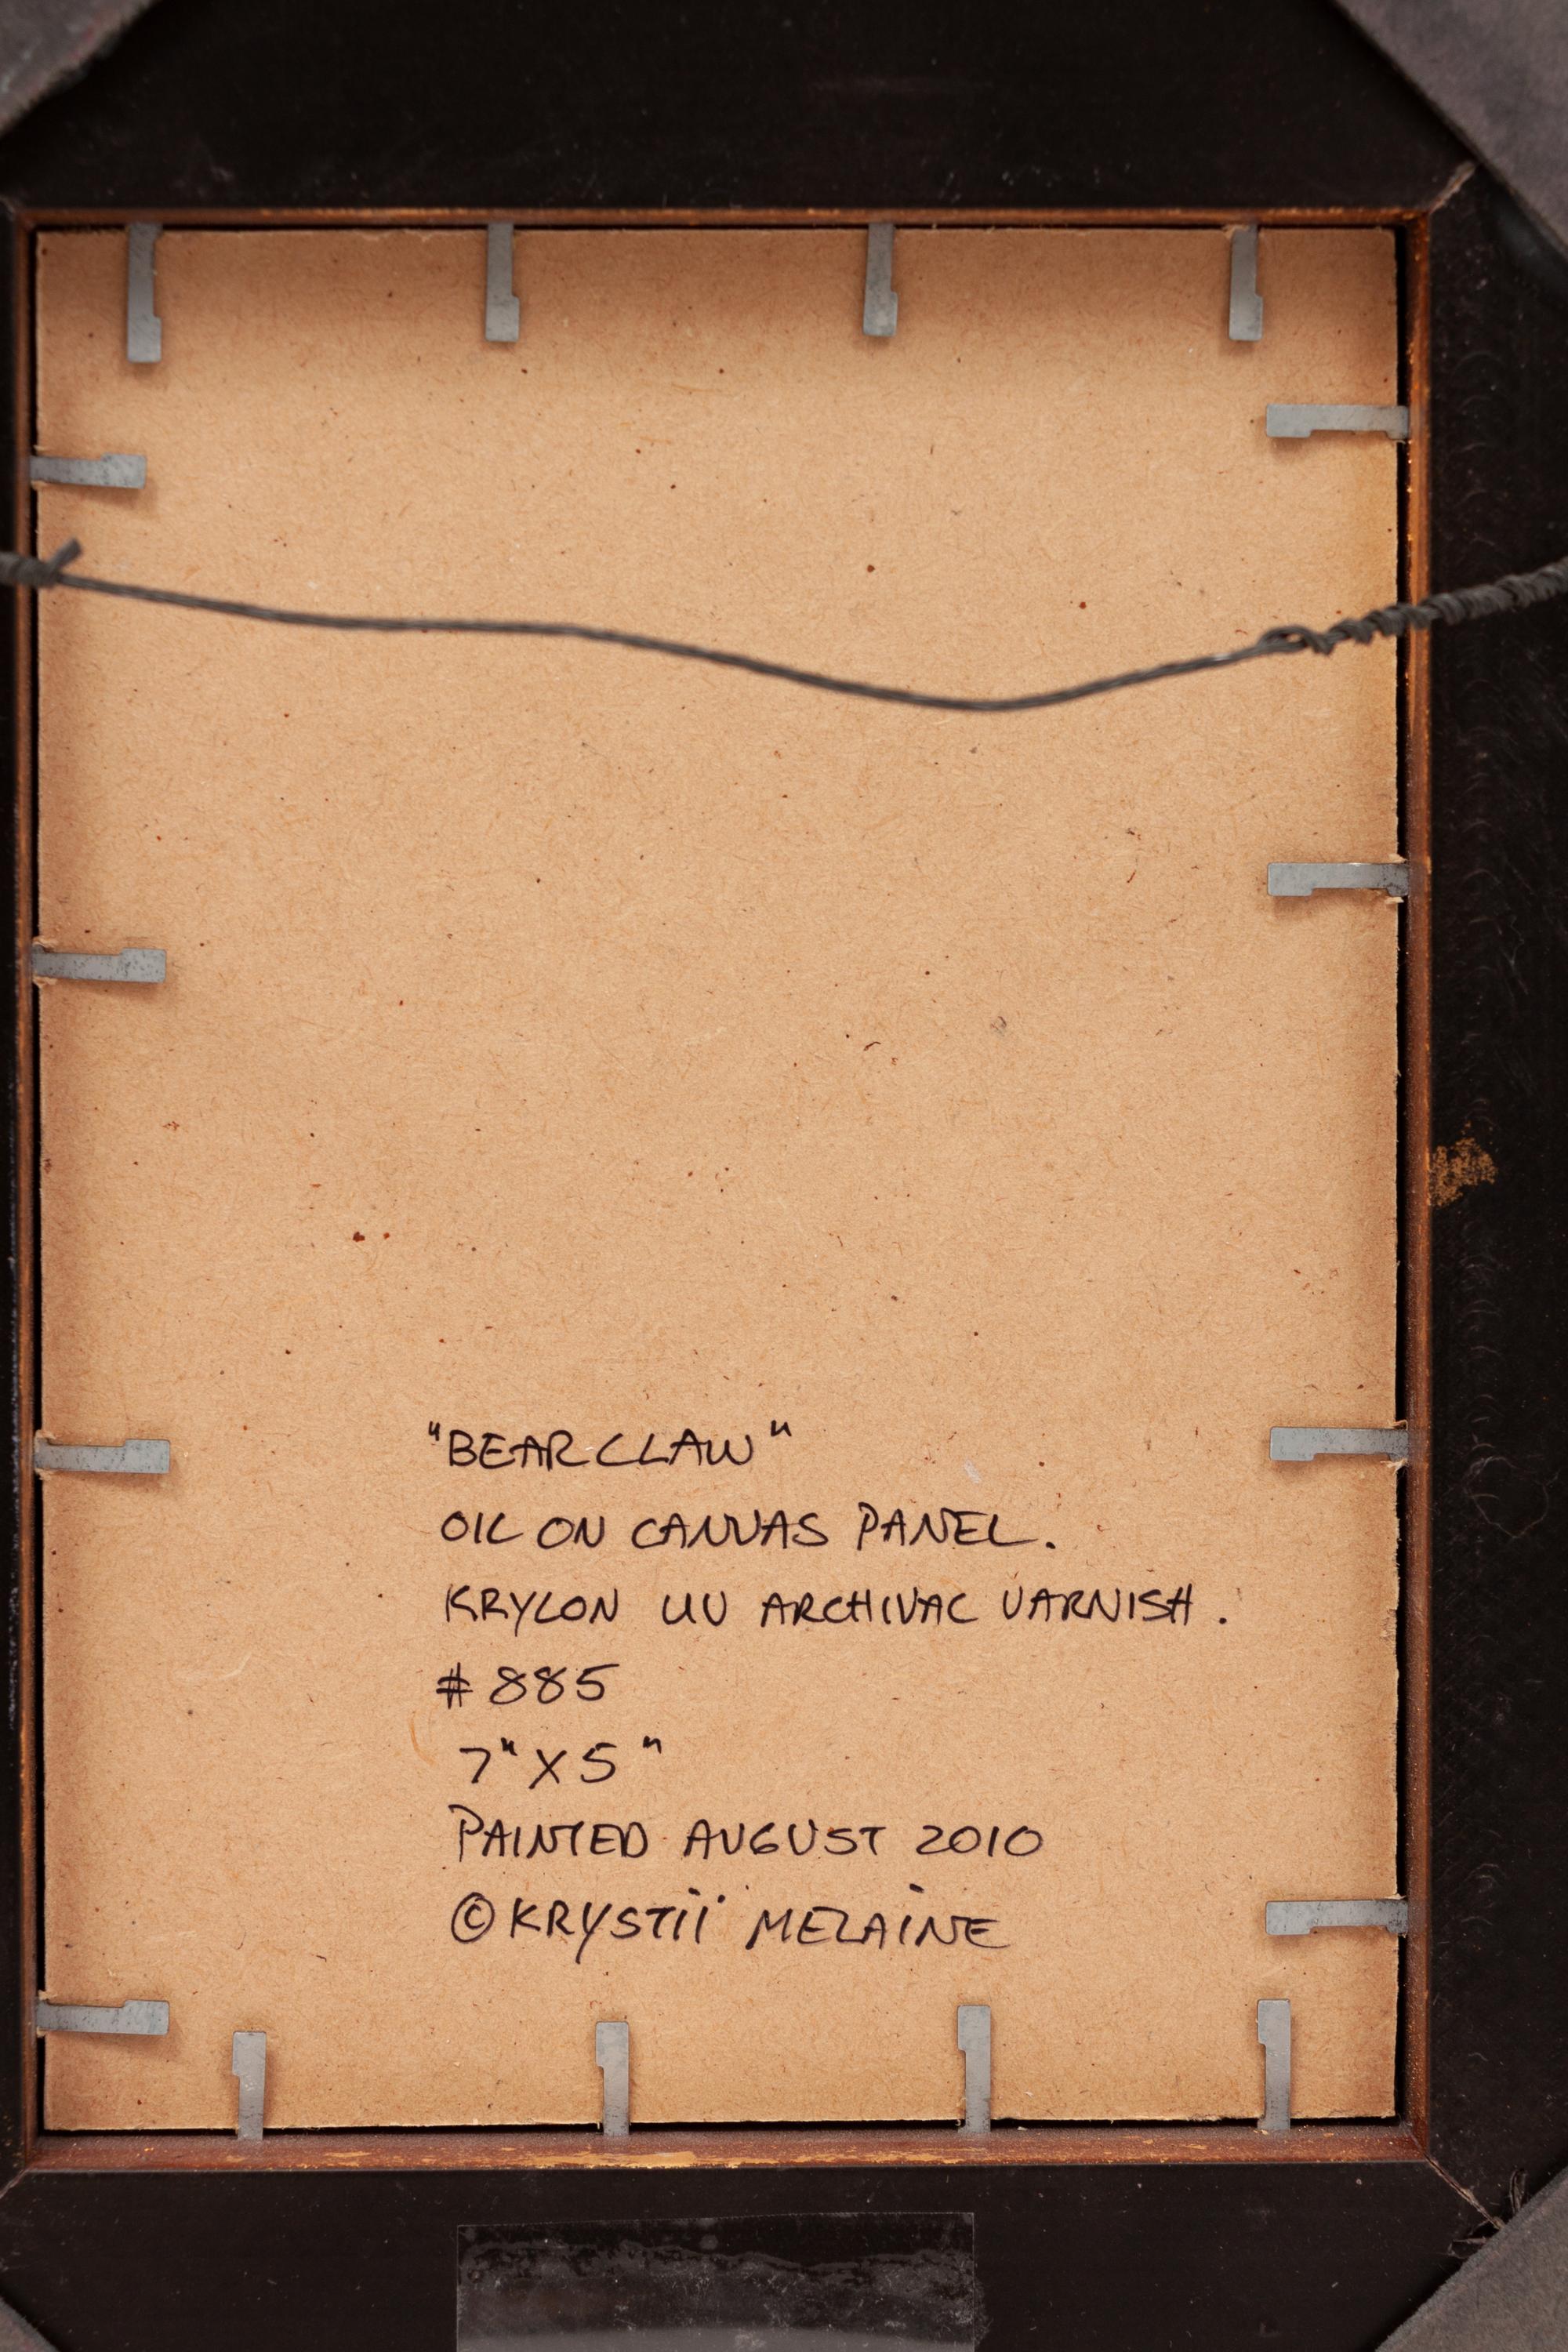 "BEAR CLAW"
OIL ON CANVAS PANEL.
KRYLON UV ARCHIVAL VARNISH.
# 885
7" X 5"
PAINTED AUGUST 2010
© KRYSTII MELAINE